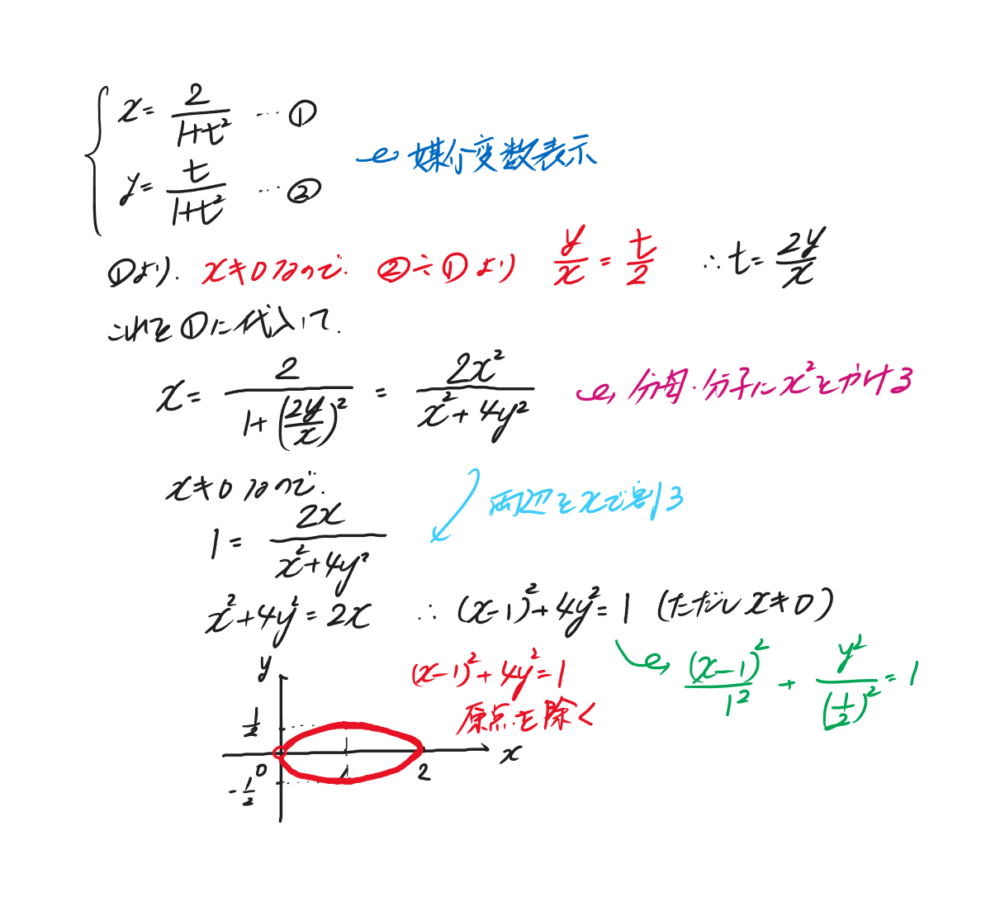 x = 2/(1+t²) … ①
y = t/(1+t²) … ②
媒介変数表示
①より. x≠0なので. ②÷①より y/x = t/2 ∴ t = 2y/x
これを①に代入して.
x = 2/(1+(2y/x)²) = 2x²/(x²+4y²) 分母・分子にx²をかける
x≠0なので.
両辺をxで割る
1 = 2x/(x²+4y²)
x²+4y² = 2x ∴ (x-1)²+4y² = 1 (ただしx≠0)
(x-1)²/1² + y²/(1/2)² = 1
(x-1)²+4y² = 1
原点を除く
y
1/2
0
1
2
x
-1/2